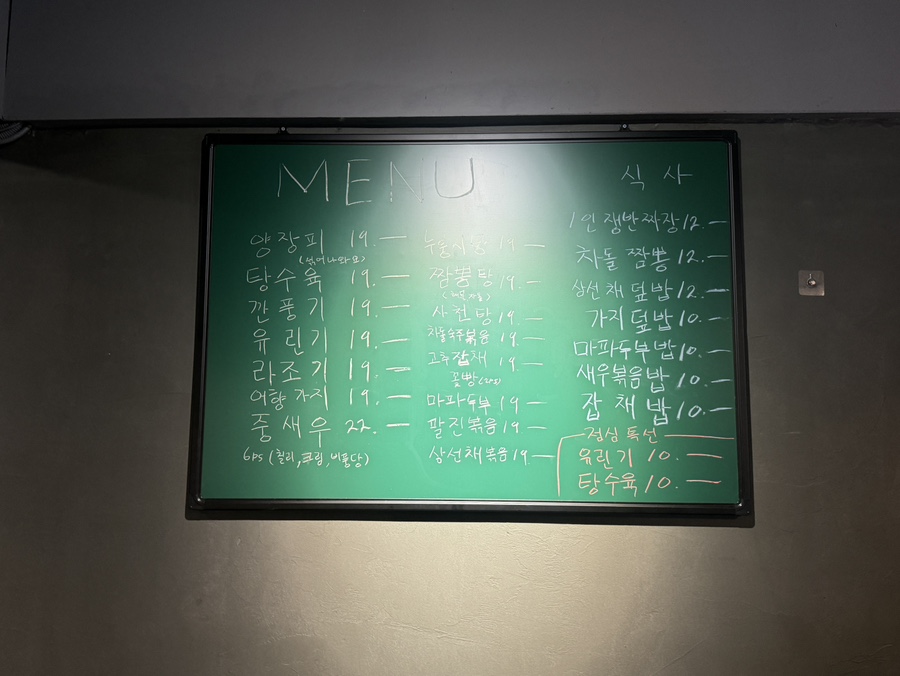 MENU
양장피 19.—
(섞어나와요)
탕수육 19.—
깐풍기 19.—
유린기 19.—
라조기 19.—
어향가지 19.—
중새우 22.—
6ps (칠리, 크림, 비풍당)
누룽지탕 19 —
짬뽕탕 19.—
사천탕 19.—
차돌숙주볶음 19.—
고추잡채 19.—
꽃빵
마파두부 19 —
팔진볶음 19 —
상선채볶음 19.—
식사
1인 쟁반짜장 12.—
차돌짬뽕 12.—
삼선채덮밥 12.—
가지덮밥 10.—
마파두부밥 10.—
새우볶음밥 10.—
잡채밥 10.—
점심특선
유린기 10.—
탕수육 10.—